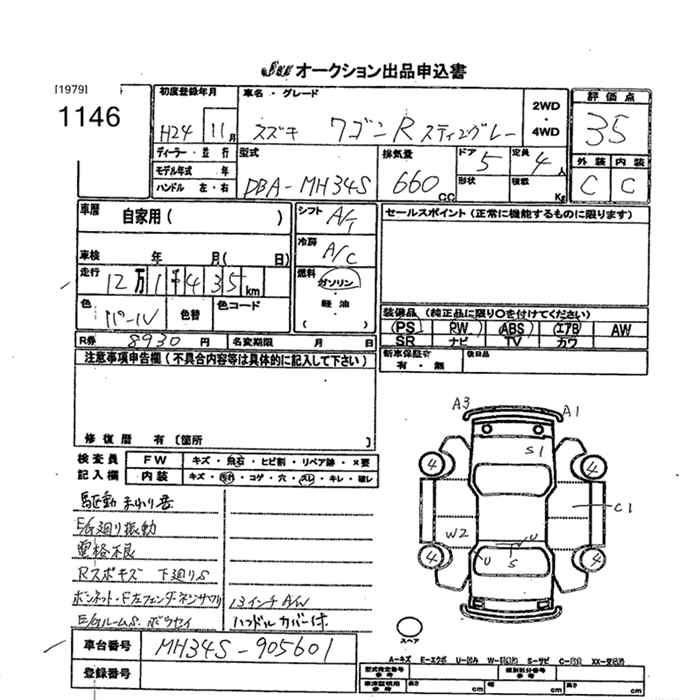 オークション出品申込書
[1979]
1146
初度登録年月
H24 11月
車名・グレード
スズキ ワゴンR スティングレー
2WD
・
4WD
評価点
35
ディーラー・並行
モデル年式 年
ハンドル 左・右
型式
DBA-MH34S
排気量
660 CC
ドア
5
形状
定員
4人
積載
Kg
外装 内装
C C
車歴
自家用( )
車検 年 月( 日)
走行
12万1千435km
色
パール
色替
色コード
シフト
A/T
冷房
A/C
燃料
ガソリン
・
軽油
( )
セールスポイント(正常に機能するものに限ります)
装備品(純正品に限り○を付けてください)
PS RW ABS エアB AW
SR ナビ TV カワ
R券 8930円 名変期限 月 日
新車保証書
有・無
後日品
注意事項申告欄(不具合内容等は具体的に記入して下さい)
修復歴 有〔箇所 〕
検査員
記入欄
FW キズ・飛石・ヒビ割・リペア跡・×要
内装 キズ・汚れ・コゲ・穴・スレ・キレ・破レ
駆動まわり音
E/G廻り振動
電格不良
Rスポキズ 下廻りS
ボンネット・F左フェンダーネジサワリ
13インチA/W
E/GルームS
ハンドルカバー付
A3 A1
S1
4 4
C1
W2 U
4 U S 4
スペア
車台番号 MH34S-905601
登録番号
A-キズ E-エクボ U-凹み S-サビ
型式指定番号
参考
類別区分番号
参考
長さ cm 幅 cm 高さ cm